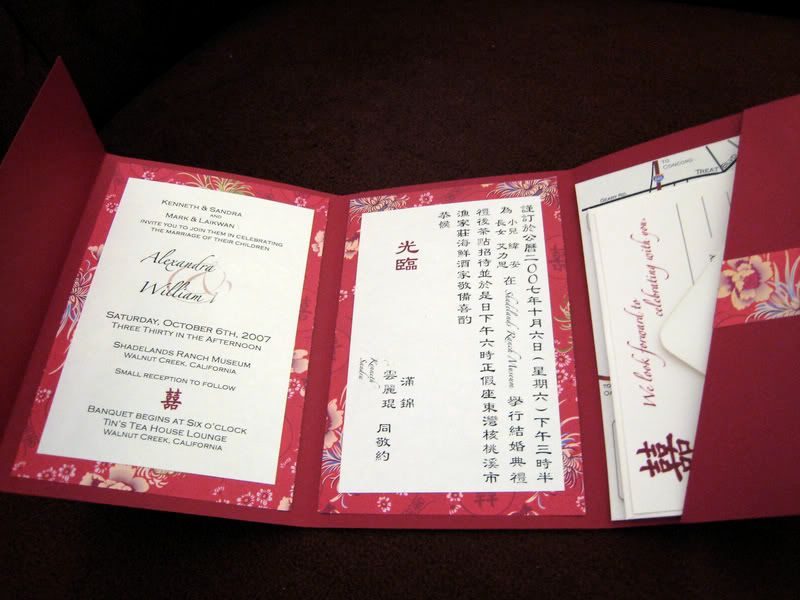 KENNETH & SANDRA
AND
MARK & LAIKWAN
INVITE YOU TO JOIN THEM IN CELEBRATING
THE MARRIAGE OF THEIR CHILDREN
Alexandra
&
William
SATURDAY, OCTOBER 6TH, 2007
THREE THIRTY IN THE AFTERNOON
SHADELANDS RANCH MUSEUM
WALNUT CREEK, CALIFORNIA
SMALL RECEPTION TO FOLLOW
囍
BANQUET BEGINS AT SIX O'CLOCK
TIN'S TEA HOUSE LOUNGE
WALNUT CREEK, CALIFORNIA
謹訂於公曆二00七年十月六日(星期六)下午三時半
為 小兒 緯安
長女 艾力思 在 Shadelands Ranch Museum 舉行結婚典禮
禮後茶點招待並於是日下午六時正假座東灣核桃溪市
漁家莊海鮮酒家敬備喜酌
恭候
光臨
滿錦
雲麗琨 同敬約
Kenneth
Sandra
TO
CONCORD
GEARY RD.
TREAT
We look forward to
celebrating with you.
囍